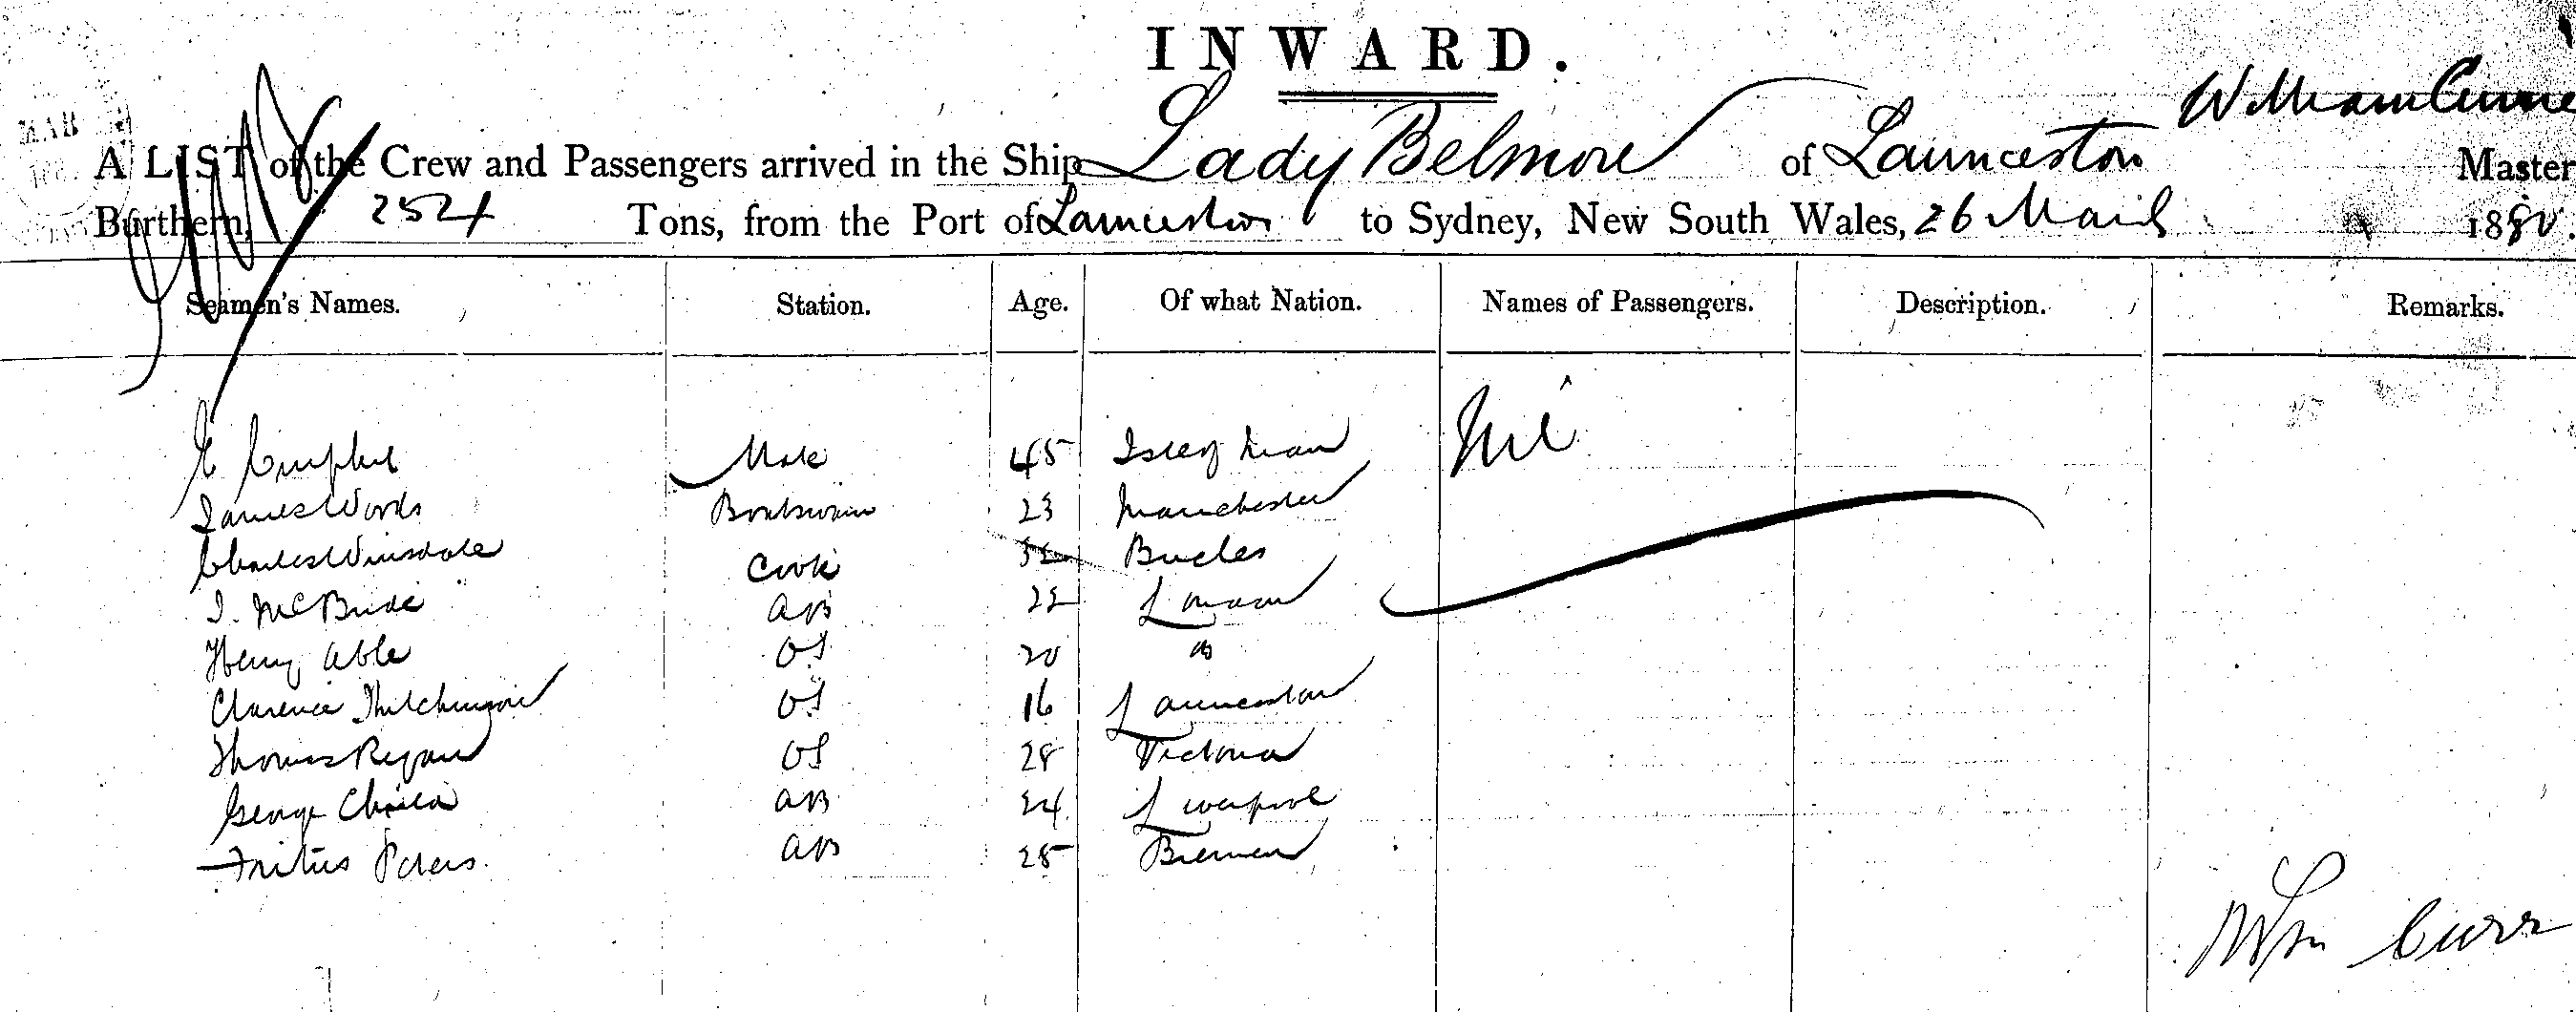 INWARD.
William
A LIST of the Crew and Passengers arrived in the Ship Lady Belmore of Launceston Master
Burthern, 252 Tons, from the Port of Launceston to Sydney, New South Wales, 26 March 188
Seamen's Names. Station. Age. Of what Nation. Names of Passengers. Description. Remarks.
Mate 45 Isle of Man Nil
James Woods Boatswain 23 Manchester
Charles Cook
J. McBride AB 22 London
Henry Able OS 20 Do
Clarence Hutchinson OS 16 Launceston
Thomas Regan OS 28 Victoria
George AB 24 Liverpool
Peters AB 25 Bremen
Wm
MAR